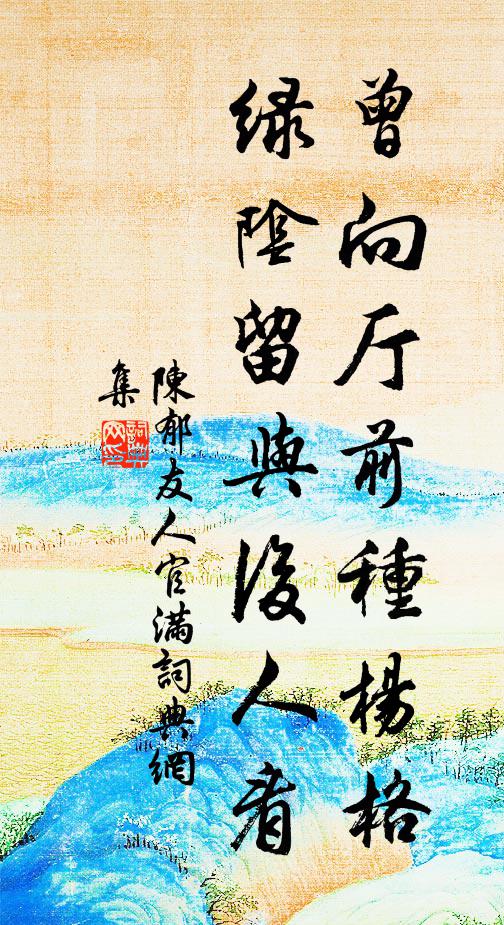 曾向厅前種楊格
緑陰留與後人看
陳郁友人官滿詞典網
集